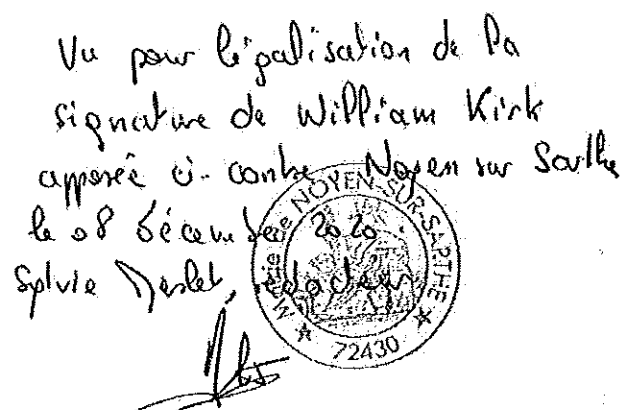 Vu pour légalisation de la
signature de William Kirk
apposée ci-contre Noyen sur Sarthe
le 08 Décembre 2020
Sylvie rédacteur
Mairie de NOYEN-SUR-SARTHE
72430